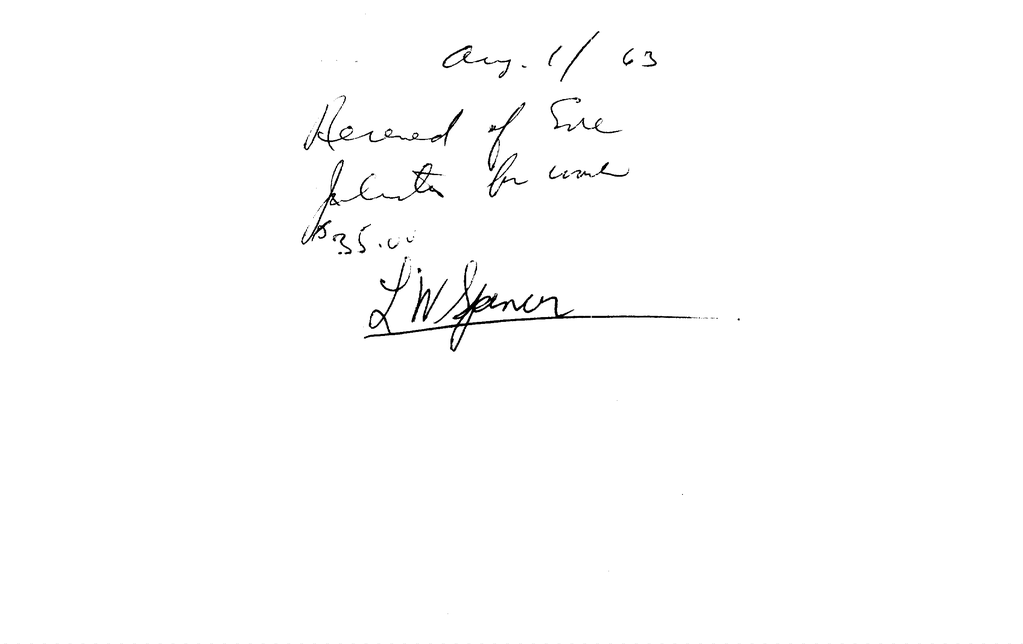 Aug. 1/63
Received of
for work
$35.00
L W Spencer